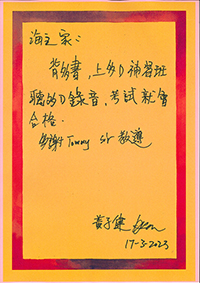 海之家：
背多書，上多D補習班
聽多D錄音，考試就會
合格。
多謝Tommy sir 教導
黃子健
17-3-2023